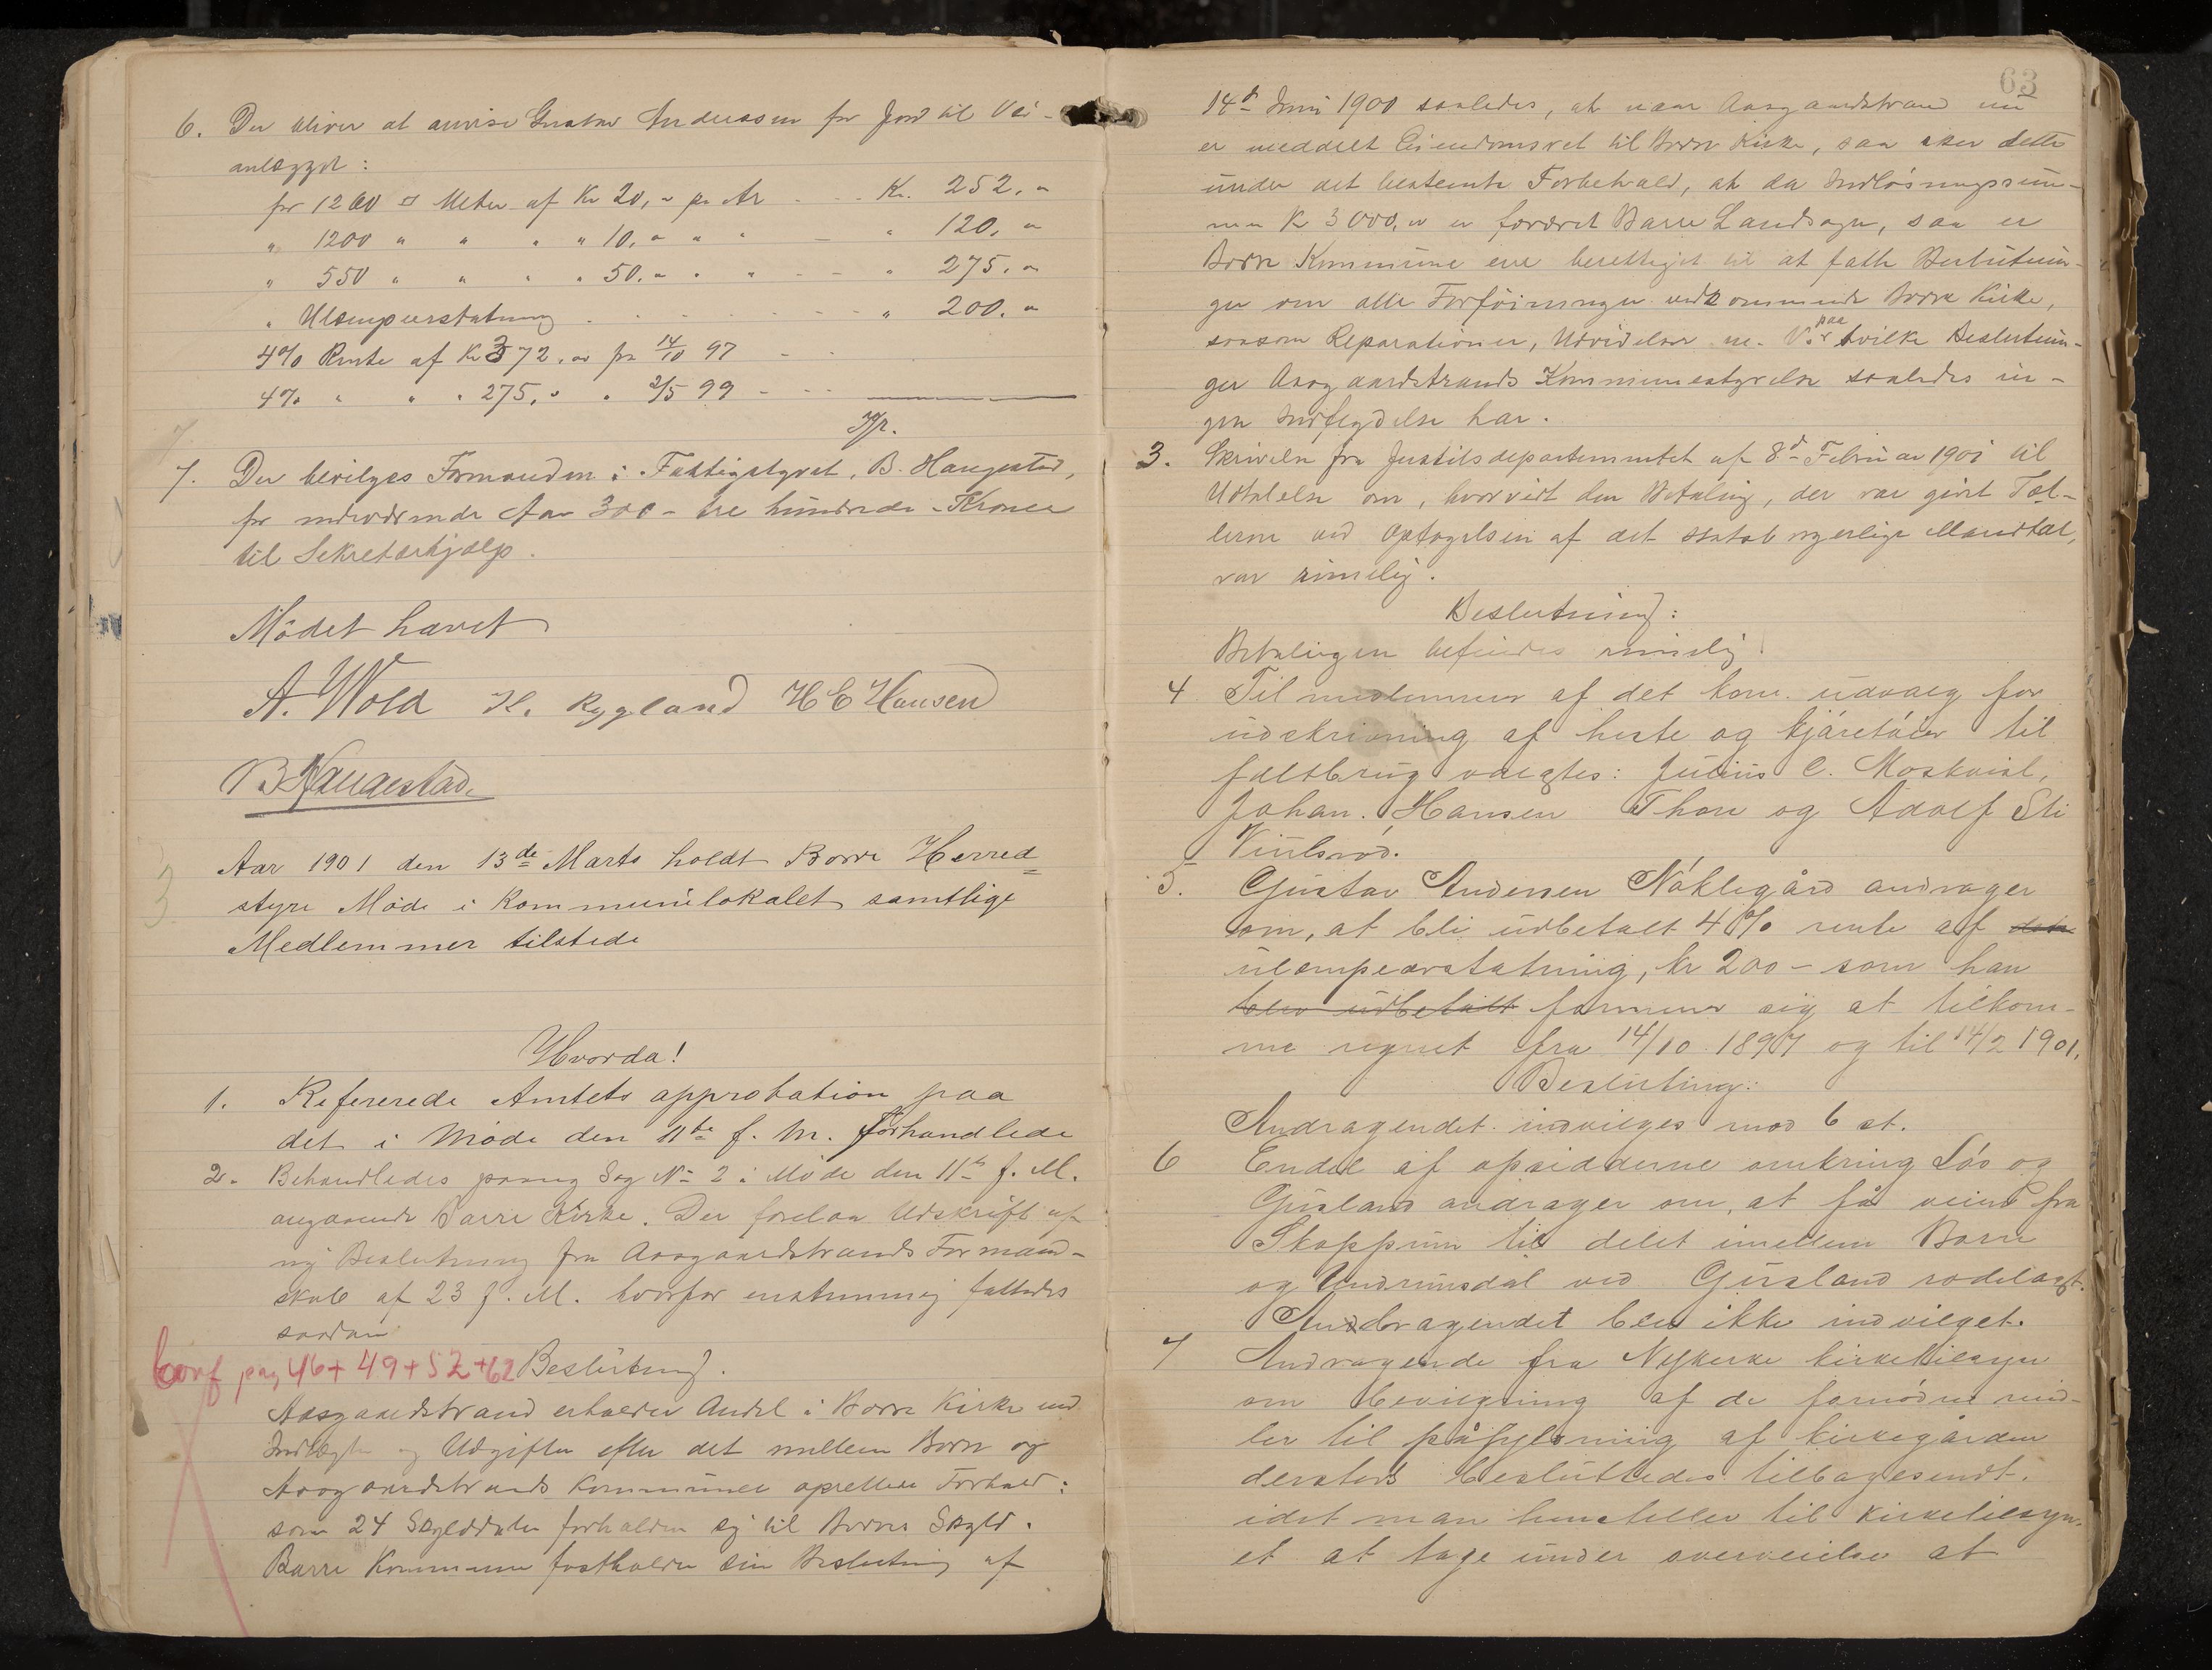 6. Der bliver at anvise Gustav Anderssen for Jord til Vei-
anlægget:
for 1260 □ Meter af Kr 20,- pr Ar - - - Kr. 252.-
" 1200 " " " " 10,- " " - " 120,-
" 550 " " " " 50.- " " - - " 275.-
" Ulempeerstatning - - - " 200.-
4% Rente af Kr 372.00 fra 14/10 97 - -
4% " " " 275,- " 2/5 99 - - -
Kr.
7. Der bevilges Formanden i Fattigstyret, B. Haugestad,
for indeværende Aar 300 - tre hundrede - Kroner
til Sekretærhjælp.
Mödet hævet
A. Wold H. Rygland H E Hansen
B Haugestad.
Aar 1901 den 13de Marts holdt Borre Herred=
styre Möde i Kommunelokalet samtlige
Medlemmer tilstede
Hvorda!
1. Refererede Amtets approbation paa
det i Möde den 11te f. M. forhandlede
2. Behandledes paany Sag No 2 i Möde den 11te f. M.
angaaende Borre Kirke. Der forelaa Udskrift af
ny Beslutning fra Aasgaardstrands Formand-
skab af 23 f. M. hvorfor enstemmig fattedes
saadan
Conf pag 46+49+52+62 Beslutning.
Aasgaardstrand erholder Andel i Borre Kirke med
Indtægter og Udgifter efter det mellem Borre og
Aasgaardstrands Kommuner oprettede Forhold:
som 24 Skylddaler forholder sig til Borres Skyld.
Borre Kommune fastholder sin Beslutning af
63
14de Juni 1900 saaledes, at naar Aasgaardstrand nu
er meddelt Eiendomsret til Borre Kirke, saa sker dette
under det bestemte Forbehold, at da Indlösningssum-
men Kr 3000,00 er foræret Borre Landsogn, saa er
Borre Kommune ene berettiget til at fatte Beslutnin-
ger om alle Forföininger vedkommende Borre Kirke,
saasom Reparationer, Udvidelser m. V. paa hvilke Beslutnin-
ger Aasgaardstrands Kommunestyrelse saaledes in-
gen Indflydelse har.
3. Skrivelse fra Justitsdepartementet af 8de Februar 1901 til
Udtalelse om, hvorvidt den Betaling, der var givet Tæl-
lerne ved Optagelsen af det statsborgerlige Mandtal,
var rimelig.
Beslutning:
Betalingen befindes rimelig.
4 Til medlemmer af det kom. udvalg for
udskrivning af heste og kjöretöier til
feltbrug valgtes: Julius C. Moskvist,
Johan. Hansen Thon og Adolf Sti
Viulsrød.
5. Gustav Andersen Nöklegård andrager
om, at bli udbetalt 4% rente af den
ulempeærstatning, kr 200 - som han
blev udbetalt formener sig at tilkom-
me regnet fra 14/10 1897 og til 14/2 1901.
Beslutning:
Andragendet indvilges mod 6 st.
6 Endel af opsidderne omkring Lös og
Gusland andrager om, at få veien fra
Skoppum til delet imellem Borre
og Undrumsdal ved Gusland rodelagt.
Andragendet blev ikke indvilget.
7 Andragende fra Nykirke kirketilsyn
om bevilgning af de fornödne mid-
ler til påfyldning af kirkegården
dersteds besluttedes tilbagesendt.
idet man henstiller til kirketilsyn-
et at tage under overveielse at